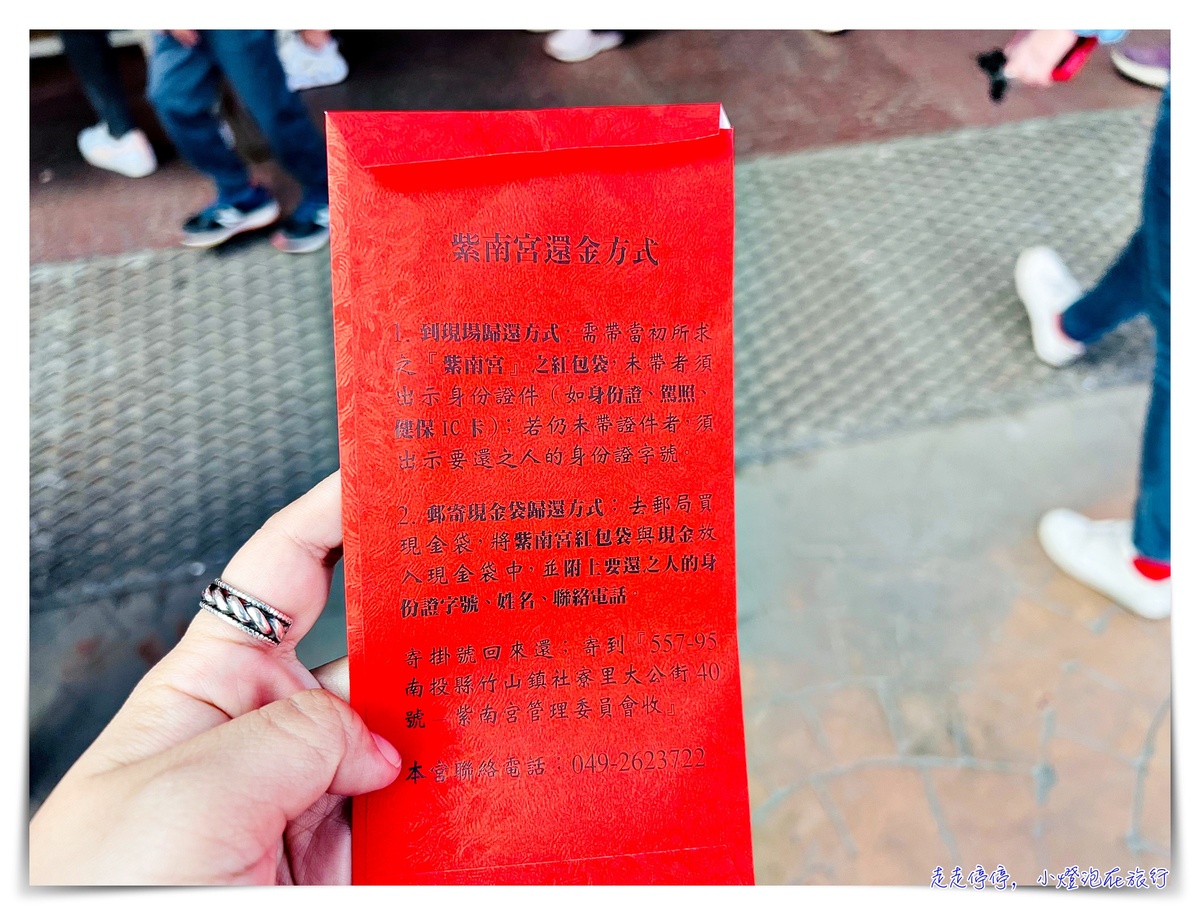 紫南宮還金方式
1. 到現場歸還方式：需帶當初所求
之『紫南宮』之紅包袋，未帶者須
出示身份證件（如身份證、駕照、
健保 IC 卡）；若仍未帶證件者，須
出示要還之人的身份證字號。
2. 郵寄現金袋歸還方式：去郵局買
現金袋，將紫南宮紅包袋與現金放
入現金袋中，並附上要還之人的身
份證字號、姓名、聯絡電話。
寄掛號回來還；寄到『557-95
南投縣竹山鎮社寮里大公街 40
號－紫南宮管理委員會收』
本宮聯絡電話：049-2623722
走走停停，小燈泡在旅行